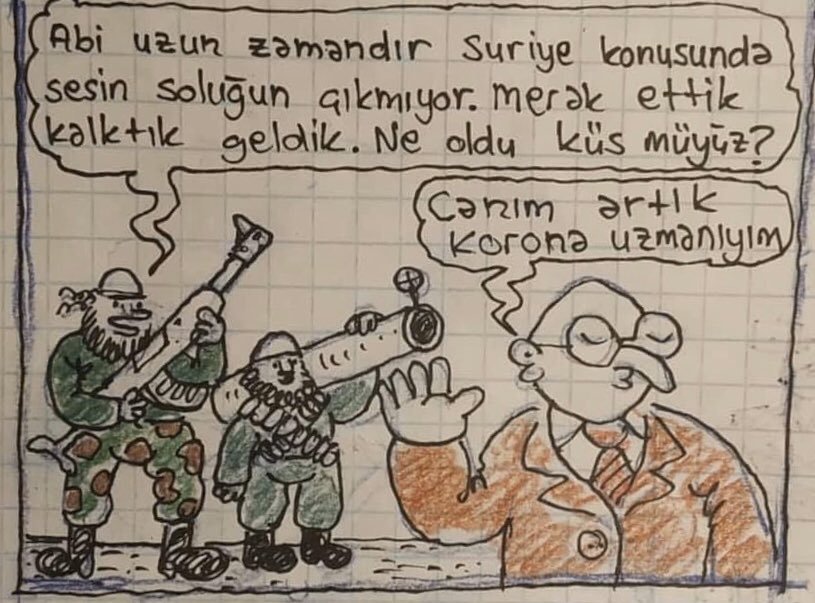 Abi uzun zamandır Suriye konusunda
sesin soluğun çıkmıyor. merak ettik
kalktık geldik. Ne oldu küs müyüz?
Canım artık
korona uzmanıyım